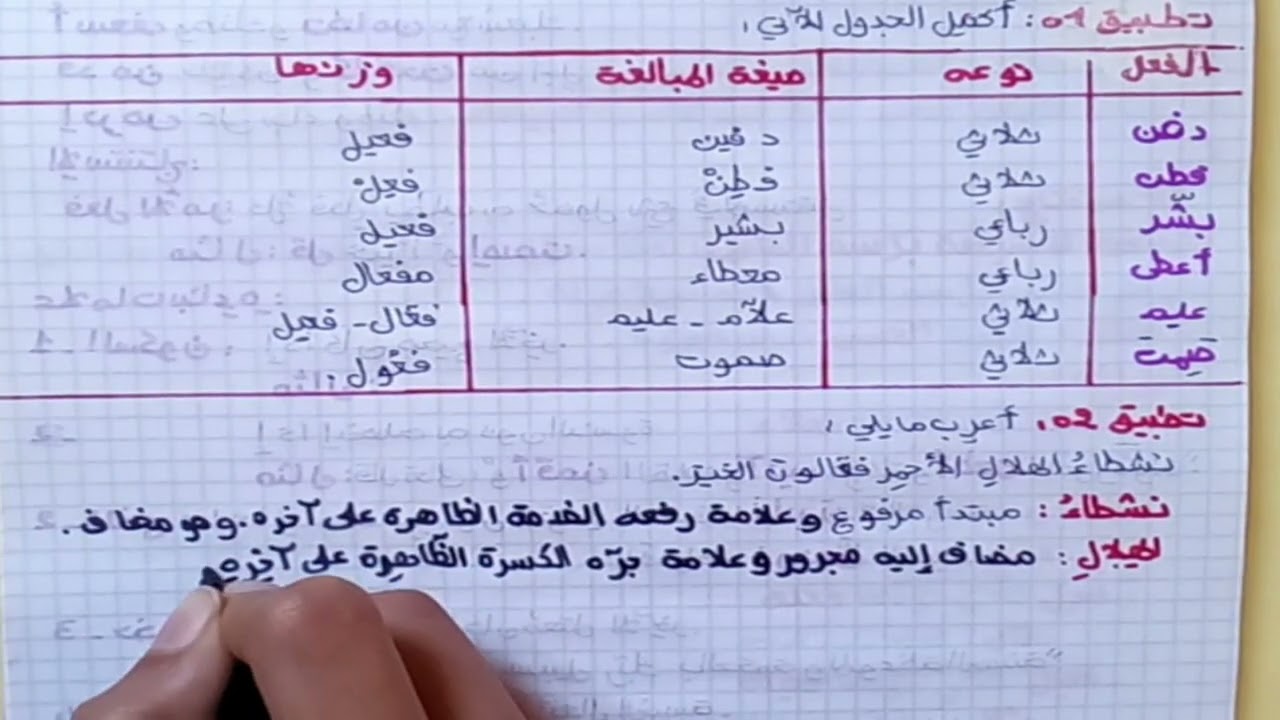 تطبيق 01: أكمل الجدول الآتي.
الفعل نوعه صيغة المبالغة وزنها
دفن ثلاثي دفين فعيل
فطن ثلاثي فَطِنْ فَعِلْ
بشّر رباعي بشير فعيل
أعطى رباعي معطاء مفعال
عليم ثلاثي علاّم - عليم فعّال - فعيل
صمت ثلاثي صموت فعول.
تطبيق 02. أعرب ما يلي:
نشطاءُ الهلالِ الأحمرِ فعّالون الخير.
نشطاءُ: مبتدأ مرفوع وعلامة رفعه الضمة الظاهرة على آخره. وهو مضاف.
الهلالِ: مضاف إليه مجرور وعلامة جرّه الكسرة الظّاهرة على آخِرِهِ